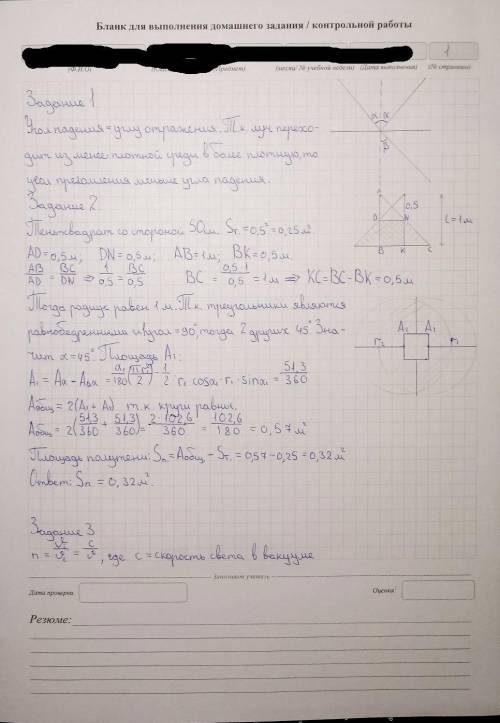 Бланк для выполнения домашнего задания / контрольной работы
1
(Ф.И.О) (Предмет) (место/ № учебной недели) (Дата выполнения) (№ страницы)
Задание 1
Угол падения = углу отражения. Т.к. луч перехо-
дит из менее плотной среды в более плотную, то
угол преломления меньше угла падения.
α α
β
Задание 2
Тень квадрат со стороной 50м. Sт. = 0,5² = 0,25м²
AD = 0,5м; DN = 0,5м; AB = 1м; BK = 0,5м.
AB/AD = BC/DN ⇒ 1/0,5 = BC/0,5 BC = 0,5·1/0,5 = 1м ⇒ KC = BC - BK = 0,5м
A
0,5
D N
B K C
ℓ = 1м
Тогда радиус равен 1м. Т.к. треугольники являются
равнобедренными и угол = 90°, тогда 2 других 45°. Зна-
чит α = 45°. Площадь A₁:
A₁ = Aα - AΔα = α₁/180 (πr²/2) - 1/2 · r₁ cosα₁ · r₁ · sinα₁ = 51,3/360
Aобщ = 2(A₁ + A₂) т.к. круги равны.
Aобщ = 2(51,3/360 + 51,3/360) = 2·102,6/360 = 102,6/180 = 0,57м²
Площадь полутени: Sп = Aобщ - Sт. = 0,57 - 0,25 = 0,32м²
Ответ: Sп = 0,32м².
A₂ A₁
r₂ r₁
Задание 3
n = v₁/v₂ = c/v, где c = скорость света в вакууме
Заполняет учитель
Дата проверки Оценка:
Резюме: